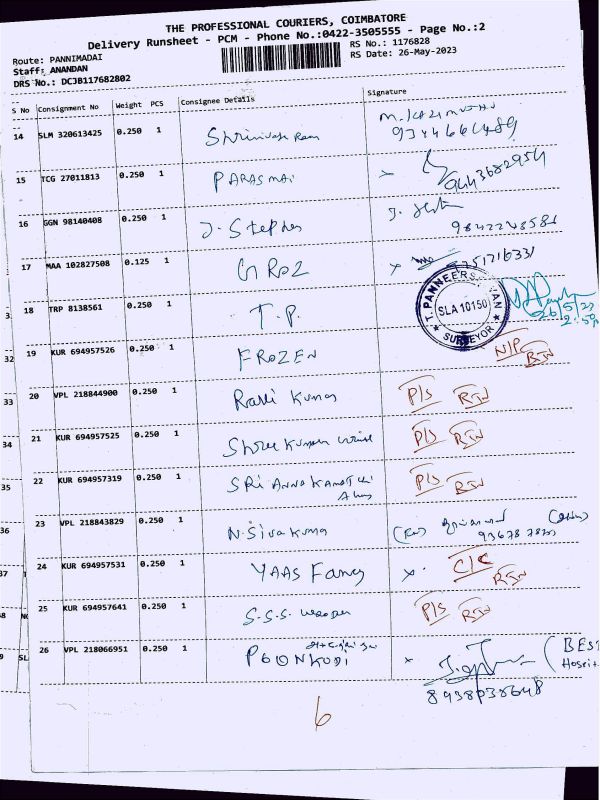 THE PROFESSIONAL COURIERS, COIMBATORE
Delivery Runsheet - PCM - Phone No.:0422-3505555 - Page No.:2
Route: PANNIMADAI
RS No.: 1176828
Staff: ANANDAN
RS Date: 26-May-2023
DRS No.: DCJB117682802
S No Consignment No Weight PCS Consignee Details Signature
14 SLM 320613425 0.250 1
9344666489
15 TCG 27011813 0.250 1 PARASMAI
9443682954
16 GGN 98140408 0.250 1 J. Stephen
9842248581
17 MAA 102827508 0.125 1 GROZ
18 TRP 8138561 0.250 1 T.P.
T.PANNEERSELVAN
SLA 10150
SURVEYOR
26/5/23
32 19 KUR 694957526 0.250 1 FROZEN N/P RTN
33 20 VPL 218844900 0.250 1 Ravi Kumar P/S RTN
34 21 KUR 694957525 0.250 1 P/S RTN
35 22 KUR 694957319 0.250 1 SRI ANNA KAMATCHI P/S RTN
36 23 VPL 218843829 0.250 1 N. Sivakumar
37 24 KUR 694957531 0.250 1 YAAS Fancy x. C/C RTN
38 25 KUR 694957641 0.250 1 S.S.S. P/S RTN
39 26 VPL 218066951 0.250 1 POONKODI
(BEST
8938038648
6